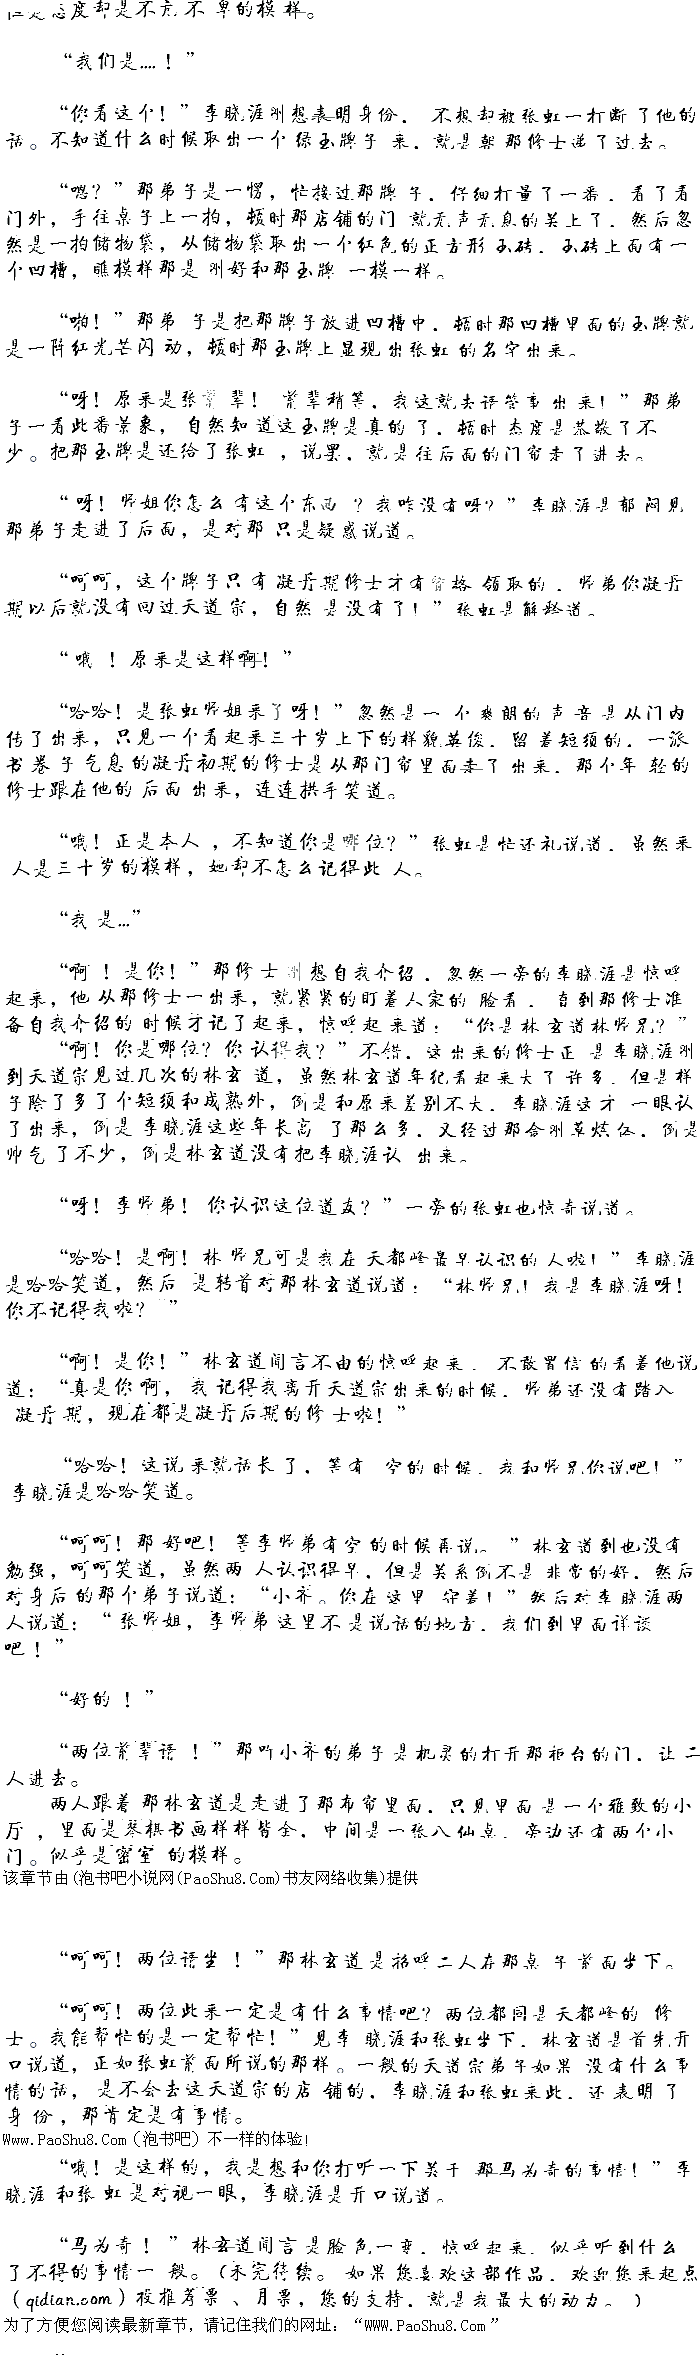 但是态度却是不亢不卑的模样。
“我们是....！”
“你看这个！”李晓涯刚想表明身份，不想却被张虹一打断了他的
话。不知道什么时候取出一个绿玉牌子来，就是朝那修士递了过去。
“嗯？”那弟子是一愣，忙接过那牌子，仔细打量了一番，看了看
门外，手往桌子上一拍，顿时那店铺的门就无声无息的关上了，然后忽
然是一拍储物袋，从储物袋取出一个红色的正方形玉砖，玉砖上面有一
个凹槽，瞧模样那是刚好和那玉牌一模一样。
“啪！”那弟子是把那牌子放进凹槽中，顿时那凹槽里面的玉牌就
是一阵红光芒闪动，顿时那玉牌上显现出张虹的名字出来。
“呀！原来是张前辈！前辈稍等，我这就去请管事出来！”那弟
子一看此番景象，自然知道这玉牌是真的了，顿时态度是恭敬了不
少。把那玉牌是还给了张虹，说罢，就是往后面的门帘走了进去。
“呀！师姐你怎么有这个东西？我咋没有呀？”李晓涯是郁闷见
那弟子走进了后面，是对那只是疑惑说道。
“呵呵，这个牌子只有凝丹期修士才有资格领取的，师弟你凝丹
期以后就没有回过天道宗，自然是没有了！”张虹是解释道。
“哦！原来是这样啊！”
“哈哈！是张虹师姐来了呀！”忽然是一个爽朗的声音是从门内
传了出来，只见一个看起来三十岁上下的样貌英俊，留着短须的，一派
书卷子气息的凝丹初期的修士是从那门帘里面走了出来，那个年轻的
修士跟在他的后面出来，连连拱手笑道。
“哦！正是本人，不知道你是哪位？”张虹是忙还礼说道，虽然来
人是三十岁的模样，她却不怎么记得此人。
“我是...”
“啊！是你！”那修士刚想自我介绍，忽然一旁的李晓涯是惊呼
起来，他从那修士一出来，就紧紧的盯着人家的脸看，直到那修士准
备自我介绍的时候才记了起来，惊呼起来道：“你是林玄道林师兄？”
“啊！你是哪位？你认得我？”不错，这出来的修士正是李晓涯刚
到天道宗见过几次的林玄道，虽然林玄道年纪看起来大了许多，但是样
子除了多了个短须和成熟外，倒是和原来差别不大，李晓涯这才一眼认
了出来，倒是李晓涯这些年长高了那么多，又经过那金刚草炼体，倒是
帅气了不少，倒是林玄道没有把李晓涯认出来。
“呀！李师弟！你认识这位道友？”一旁的张虹也惊奇说道。
“哈哈！是啊！林师兄可是我在天都峰最早认识的人啦！”李晓涯
是哈哈笑道，然后是转首对那林玄道说道：“林师兄！我是李晓涯呀！
你不记得我啦？”
“啊！是你！”林玄道闻言不由的惊呼起来，不敢置信的看着他说
道：“真是你啊，我记得我离开天道宗出来的时候，师弟还没有踏入
凝丹期，现在都是凝丹后期的修士啦！”
“哈哈！这说来就话长了，等有空的时候，我和师兄你说吧！”
李晓涯是哈哈笑道。
“呵呵！那好吧！等李师弟有空的时候再说。”林玄道到也没有
勉强，呵呵笑道，虽然两人认识得早，但是关系倒不是非常的好，然后
对身后的那个弟子说道：“小齐。你在这里守着！”然后对李晓涯两
人说道：“张师姐，李师弟这里不是说话的地方，我们到里面详谈
吧！”
“好的！”
“两位前辈请！”那听小齐的弟子是机灵的打开那柜台的门，让二
人进去。
两人跟着那林玄道是走进了那布帘里面，只见里面是一个雅致的小
厅，里面是琴棋书画样样皆全，中间是一张八仙桌，旁边还有两个小
门。似乎是密室的模样。
该章节由(泡书吧小说网(PaoShu8.Com)书友网络收集)提供
“呵呵！两位请坐！”那林玄道是招呼二人在那桌子前面坐下。
“呵呵！两位此来一定是有什么事情吧？两位都同是天都峰的修
士。我能帮忙的是一定帮忙！”见李晓涯和张虹坐下，林玄道是首先开
口说道，正如张虹前面所说的那样。一般的天道宗弟子如果没有什么事
情的话，是不会去这天道宗的店铺的，李晓涯和张虹来此，还表明了
身份，那肯定是有事情。
Www.PaoShu8.Com（泡书吧）不一样的体验!
“哦！是这样的，我是想和你打听一下关于那马为奇的事情！”李
晓涯和张虹是对视一眼，李晓涯是开口说道。
“马为奇！”林玄道闻言是脸色一变，惊呼起来，似乎听到什么
了不得的事情一般。（未完待续。如果您喜欢这部作品，欢迎您来起点
（qidian.com）投推荐票、月票，您的支持，就是我最大的动力。）
为了方便您阅读最新章节，请记住我们的网址：“WWW.PaoShu8.Com”